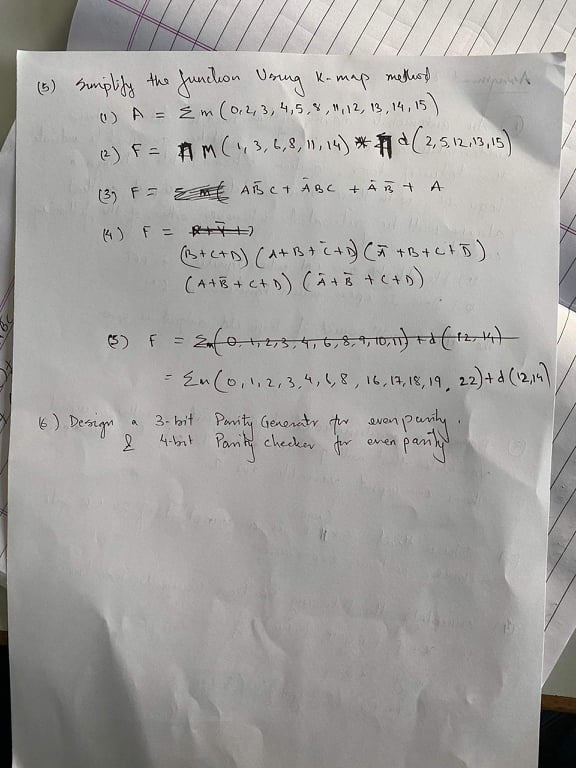 (5) Simplify the function Using K-map method
(1) A = Σm (0,2,3,4,5,8,11,12,13,14,15)
(2) F = Π M (1,3,6,8,11,14) * Π d (2,5,12,13,15)
(3) F = AB̄C + ĀBC + ĀB̄ + A
(4) F =
(B+C+D) (A+B+C̄+D) (Ā+B+C+D̄)
(A+B̄+C+D) (Ā+B̄+C+D)
(5) F = Σm(0,1,2,3,4,6,8,9,10,11)+d(12,14)
= Σm(0,1,2,3,4,6,8,16,17,18,19,22)+d(12,14)
6) Design a 3-bit Parity Generatr for even parity.
& 4-bit Parity checker for even parity